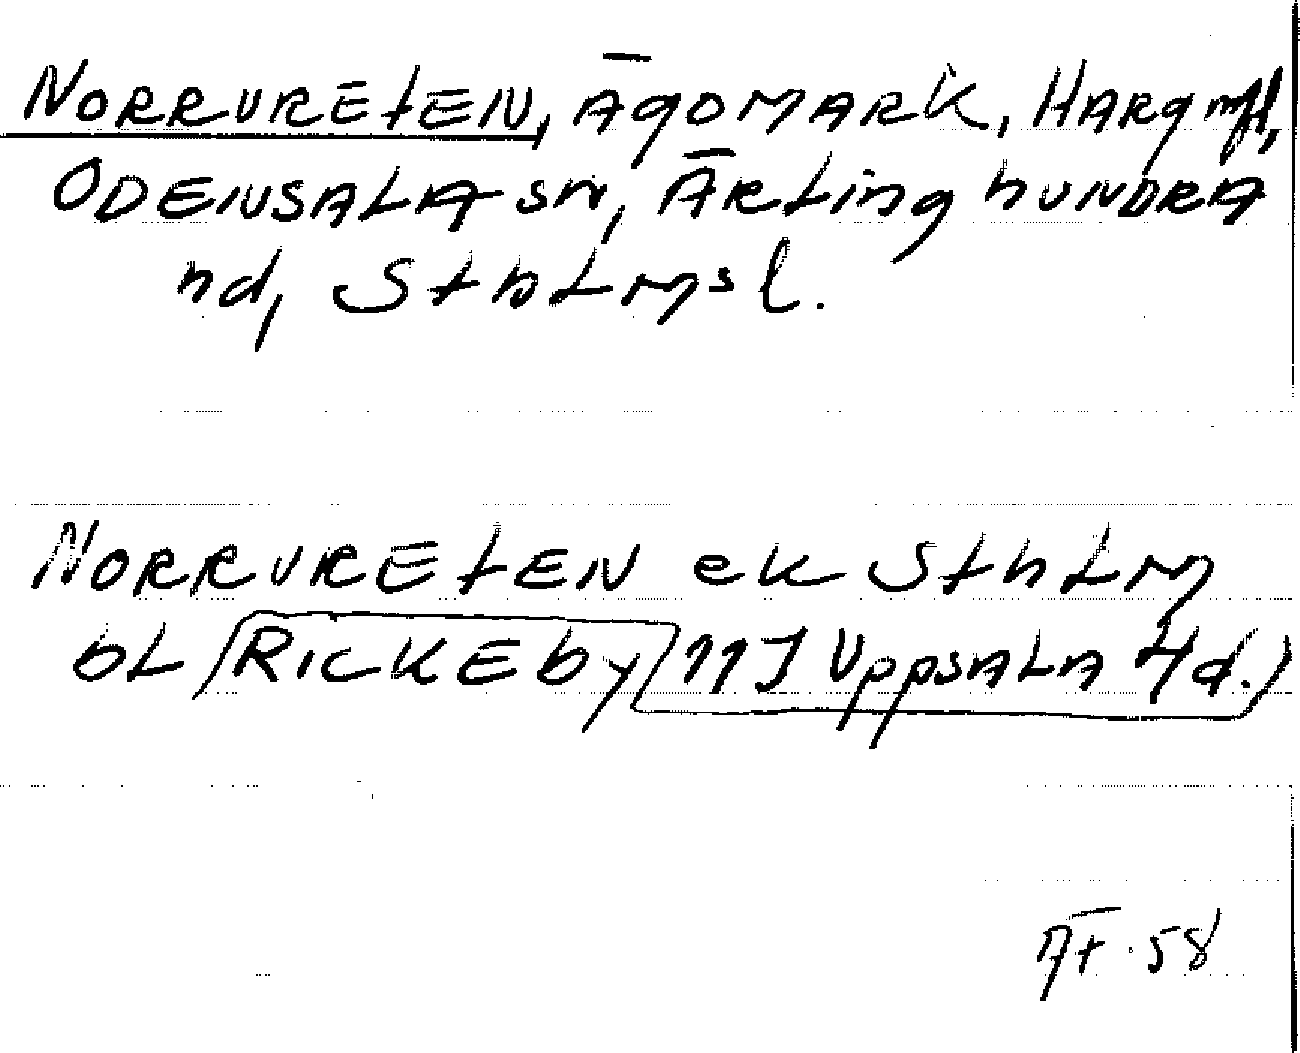 NORRVRETEN, ÄGOMARK, HARg mfl,
ODENSALA SN, ÄRLINghUNDRA
hd, SthLms l.
NORRVRETEN ek SthLm
bL (RICKEby 11J UppsALA 4d.)
ÄT. 58